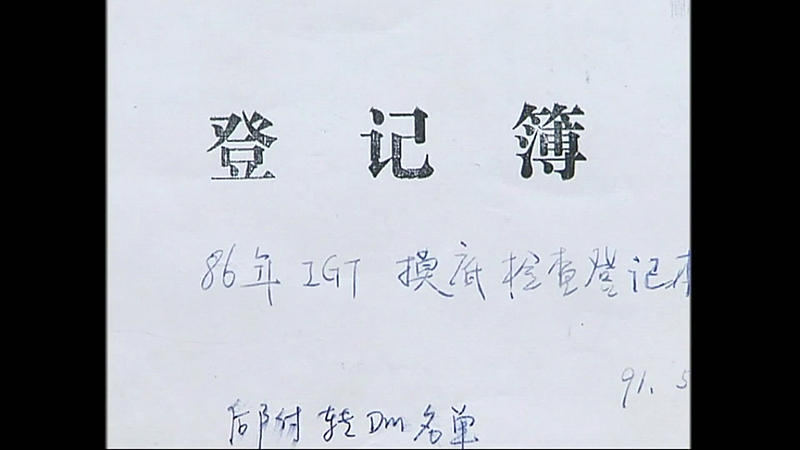 登记簿
86年IGT摸底检查登记本
91.5
后附转Dm名单